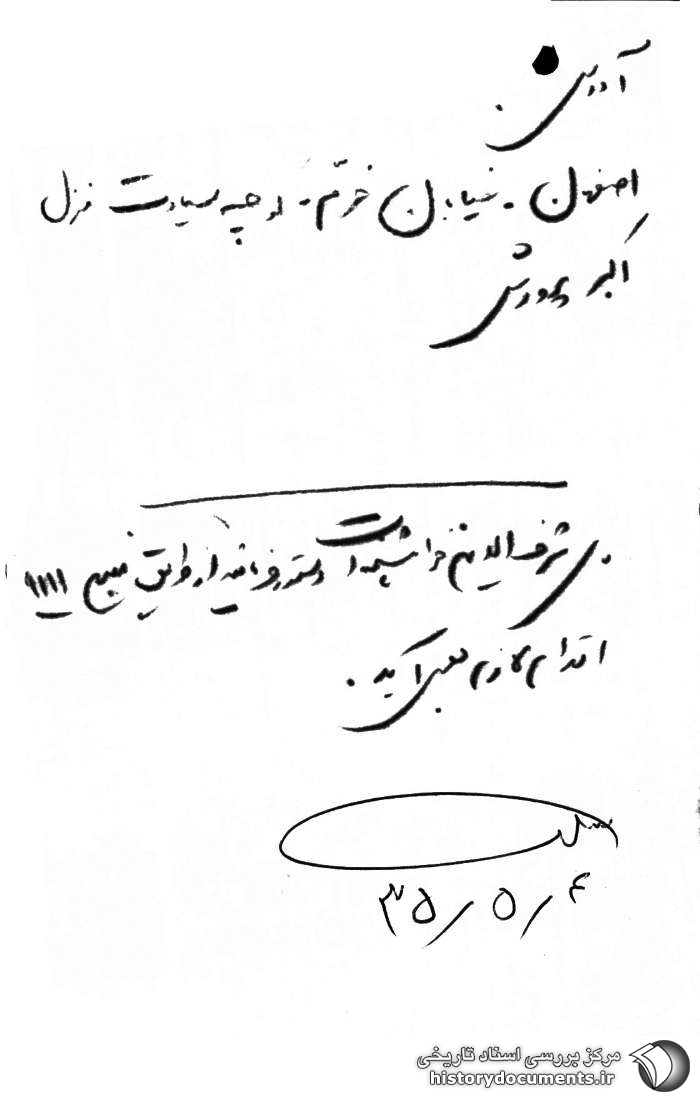 آدرس
اصفهان - خیابان خرّم - کوچه سیادت منزل
اکبر پرورش
شرف الدین خواسته است دستور فرمائید از طریق منبع ۱۱۱۱
اقدام لازم بعمل آید.
۳۵/۵/۴
مرکز بررسی اسناد تاریخی
historydocuments.ir